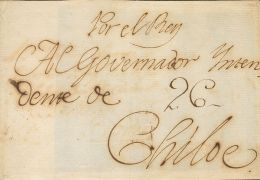 Por el Rey
Al Governador Inten
dente de 26
Chiloe